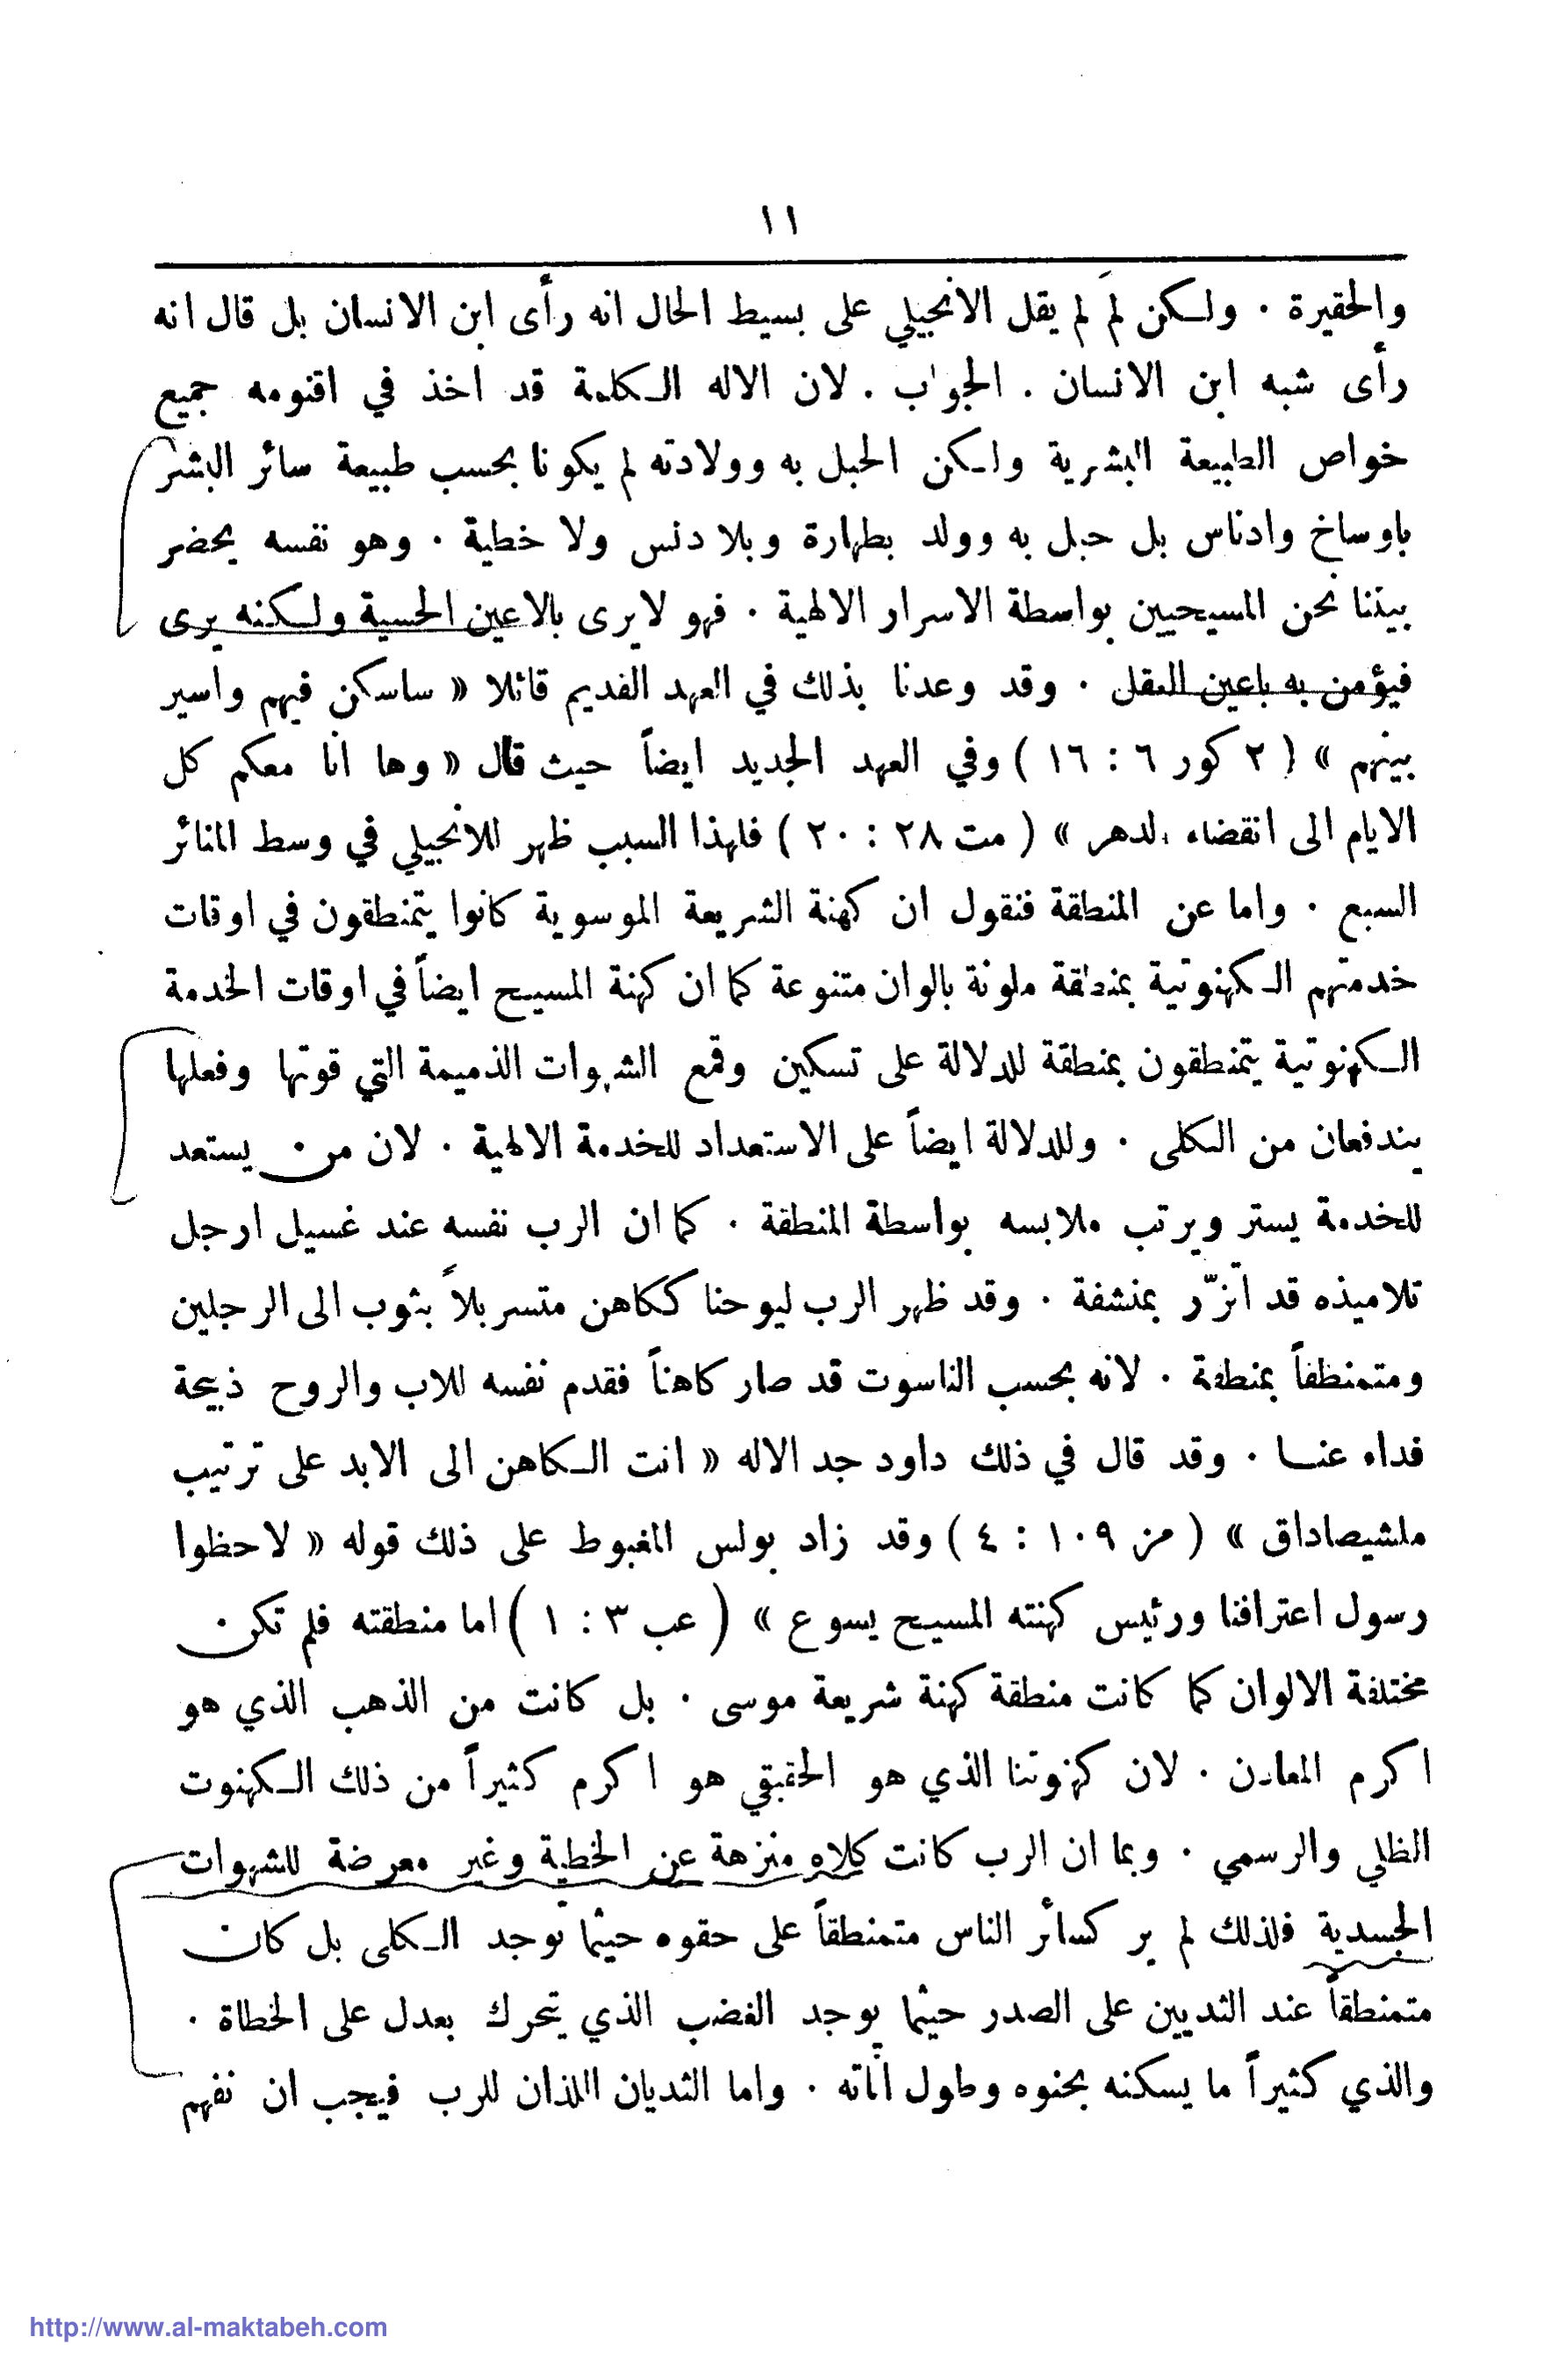 ١١
والحقيرة . ولكن لمَ لم يقل الانجيلي على بسيط الحال انه رأى ابن الانسان بل قال انه
رأى شبه ابن الانسان . الجواب . لان الاله الكلمة قد اخذ في اقنومه جميع
خواص الطبيعة البشرية ولكن الحبل به وولادته لم يكونا بحسب طبيعة سائر البشر
باوساخ وادناس بل حبل به وولد بطهارة وبلا دنس ولا خطية . وهو نفسه يحضر
بيننا نحن المسيحيين بواسطة الاسرار الالهية . فهو لا يرى بالاعين الحسية ولكنه يرى
فيؤمن به باعين العقل . وقد وعدنا بذلك في العهد القديم قائلا « ساسكن فيهم واسير
بينهم » ( ٢ كور ٦ : ١٦ ) وفي العهد الجديد ايضاً حيث قال « وها انا معكم كل
الايام الى انقضاء الدهر » ( مت ٢٨ : ٢٠ ) فلهذا السبب ظهر للانجيلي في وسط المنائر
السبع . واما عن المنطقة فنقول ان كهنة الشريعة الموسوية كانوا يتمنطقون في اوقات
خدمتهم الكهنوتية بمنطقة ملونة بالوان متنوعة كما ان كهنة المسيح ايضاً في اوقات الخدمة
الكهنوتية يتمنطقون بمنطقة للدلالة على تسكين وقمع الشهوات الذميمة التي قوتها وفعلها
يندفعان من الكلى . وللدلالة ايضاً على الاستعداد للخدمة الالهية . لان من يستعد
للخدمة يستر ويرتب ملابسه بواسطة المنطقة . كما ان الرب نفسه عند غسيل ارجل
تلاميذه قد اتزّر بمنشفة . وقد ظهر الرب ليوحنا ككاهن متسربلاً بثوب الى الرجلين
ومتمنطقاً بمنطقة . لانه بحسب الناسوت قد صار كاهناً فقدم نفسه للاب والروح ذبيحة
فداء عنا . وقد قال في ذلك داود جد الاله « انت الكاهن الى الابد على ترتيب
ملشيصاداق » ( مز ١٠٩ : ٤ ) وقد زاد بولس المغبوط على ذلك قوله « لاحظوا
رسول اعترافنا ورئيس كهنته المسيح يسوع » ( عب ٣ : ١ ) اما منطقته فلم تكن
مختلفة الالوان كما كانت منطقة كهنة شريعة موسى . بل كانت من الذهب الذي هو
اكرم المعادن . لان كهنوتنا الذي هو الحقيقي هو اكرم كثيراً من ذلك الكهنوت
الظلي والرسمي . وبما ان الرب كانت كلاه منزهة عن الخطية وغير معرضة للشهوات
الجسدية فلذلك لم ير كسائر الناس متمنطقاً على حقوه حيثما توجد الكلى بل كان
متمنطقاً عند الثديين على الصدر حيثما يوجد الغضب الذي يتحرك بعدل على الخطاة .
والذي كثيراً ما يسكنه بحنوه وطول اناته . واما الثديان اللذان للرب فيجب ان نفهم
http://www.al-maktabeh.com